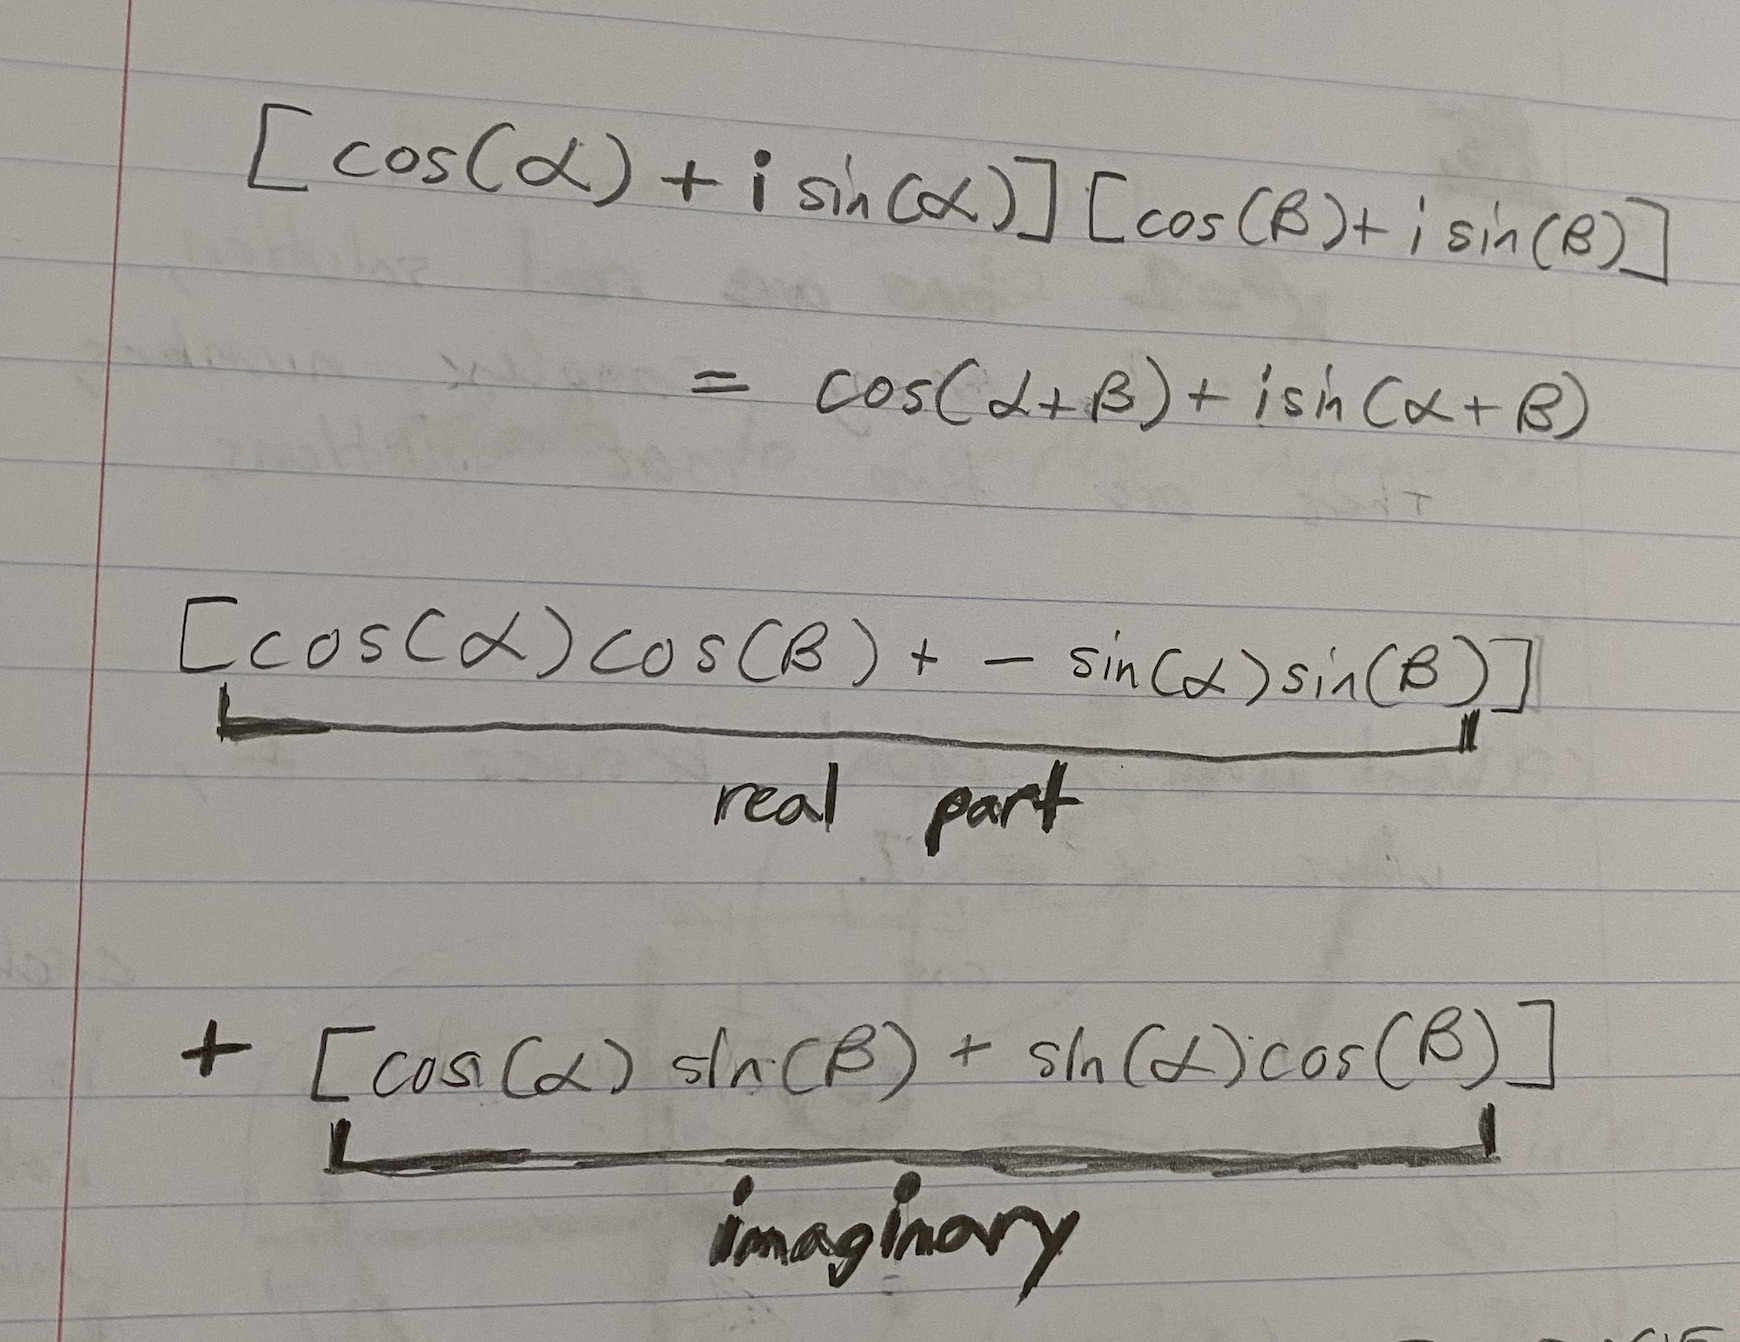 [cos(α) + i sin(α)][cos(β) + i sin(β)]
= cos(α+β) + i sin(α+β)
[cos(α)cos(β) + - sin(α)sin(β)]
real part
+ [cos(α) sin(β) + sin(α)cos(β)]
imaginary